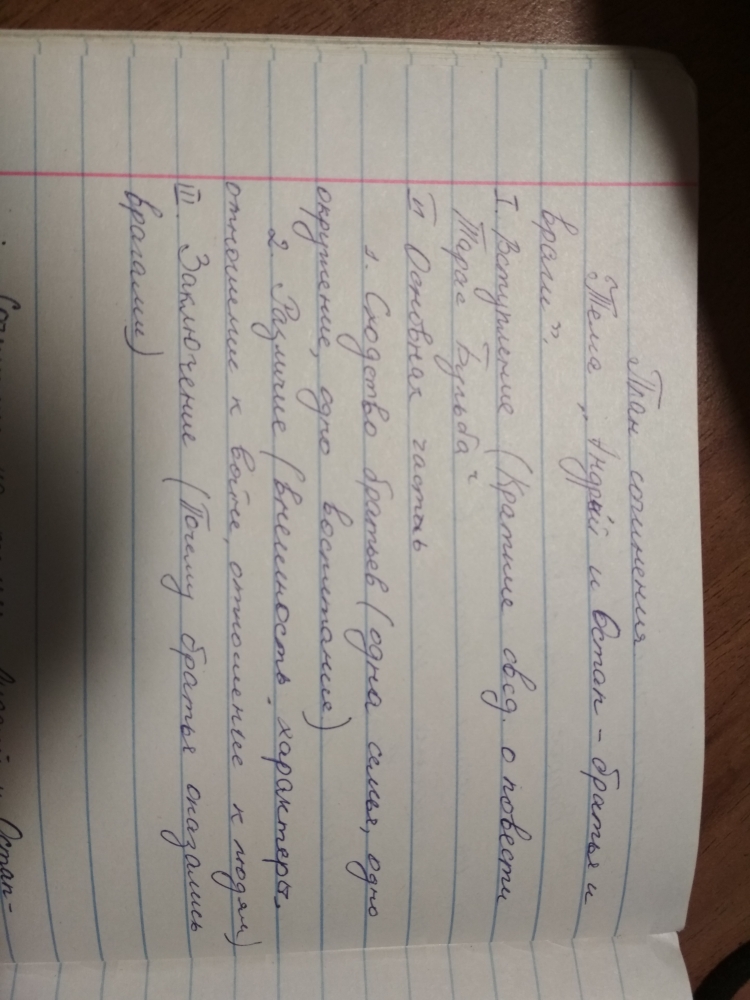 План сочинения
"Тема „Андрий и Остап - братья и
враги".
I. Вступление (Краткие свед. о повести
Тарас Бульба"
II Основная часть
1. Сходство братьев (одна семья, одно
окружение, одно воспитание)
2. Различие (внешность характеры,
отношение к войне, отношение к людям)
III. Заключение (Почему братья оказались
врагами)
Остап-